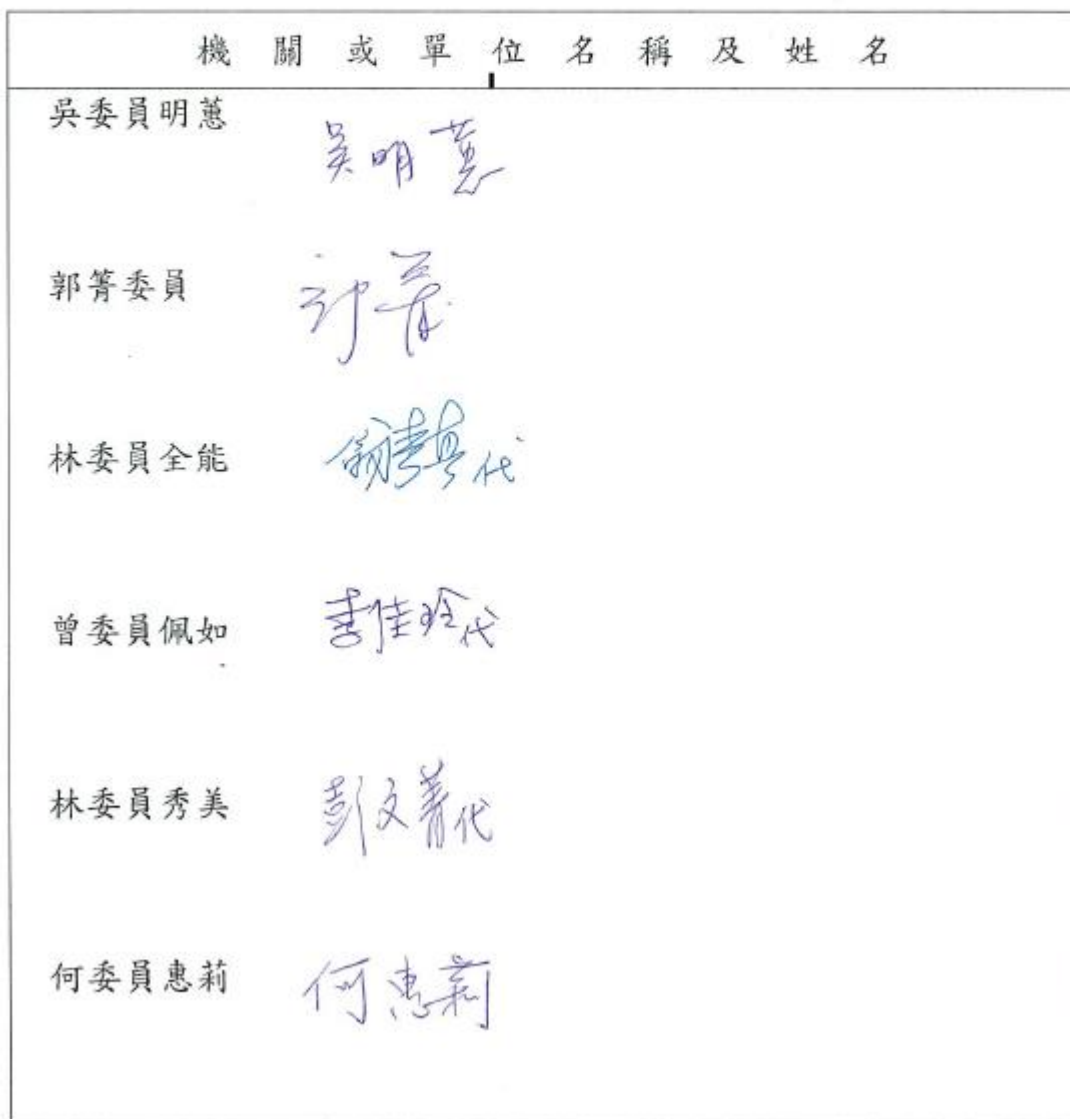 機關或單位名稱及姓名
吳委員明蕙
吳明蕙
郭箐委員
郭箐
林委員全能
代
曾委員佩如
李佳玲代
林委員秀美
彭文菁代
何委員惠莉
何惠莉